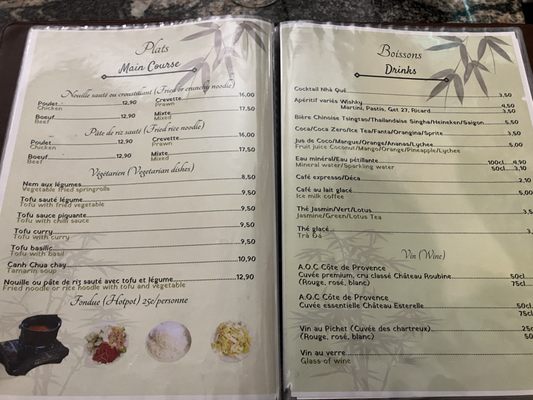 Plats
Main Course
Nouille sauté ou croustillant (Fried or crunchy noodle)
Poulet 12,90 Crevette 14,00
Chicken Prawn
Boeuf 12,90 Mixte 17,50
Beef Mixed
Pâte de riz sauté (Fried rice noodle)
Poulet 12,90 Crevette 14,00
Chicken Prawn
Boeuf 12,90 Mixte 17,50
Beef Mixed
Végétarien (Vegetarian dishes)
Nem aux légumes 8,50
Vegetable fried springrolls
Tofu sauté légume 9,50
Tofu with fried vegetable
Tofu sauce piquante 9,50
Tofu with chili sauce
Tofu curry 9,50
Tofu with curry
Tofu basilic 9,50
Tofu with basil
Canh Chua chay 10,90
Tamarin soup
Nouille ou pâte de riz sauté avec tofu et légume 12,90
Fried noodle or rice noodle with tofu and vegetable
Fondue (Hotpot) 25€/personne
Boissons
Drinks
Cocktail Nhà Quê 3,50
Apéritif variés Wishky 4,50
Martini, Pastis, Get 27, Ricard 3,50
Bière Chinoise Tsingtao/Thaïlandaise Singha/Heineken/Saigon 5,50
Coca/Coca Zero/Ice Tea/Fanta/Orangina/Sprite 3,50
Jus de Coco/Mangue/Orange/Ananas/Lychee 5,00
Fruit juice Coconut/Mango/Orange/Pineapple/Lychee
Eau minéral/Eau pétillante 100cl 4,90
Mineral water/Sparkling water 50cl 3,10
Café expresso/Déca 2,10
Café au lait glacé 5,00
Ice milk coffee
Thé Jasmin/Vert/Lotus 3,
Jasmine/Green/Lotus Tea
Thé glacé 3,
Trà Đá
Vin (Wine)
A.O.C Côte de Provence
Cuvée premium, cru classé Château Roubine 50cl
(Rouge, rosé, blanc) 75cl
A.O.C Côte de Provence
Cuvée essentielle Château Esterelle 50cl
75cl
Vin au Pichet (Cuvée des chartreux) 25c
(Rouge, rosé, blanc) 50
Vin au verre
Glass of wine